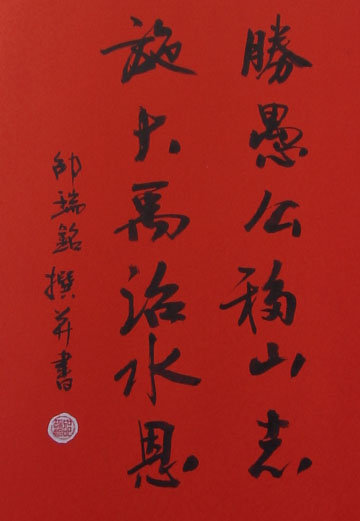 勝愚公移山志
施大禹治水恩
邵瑞銘撰并書